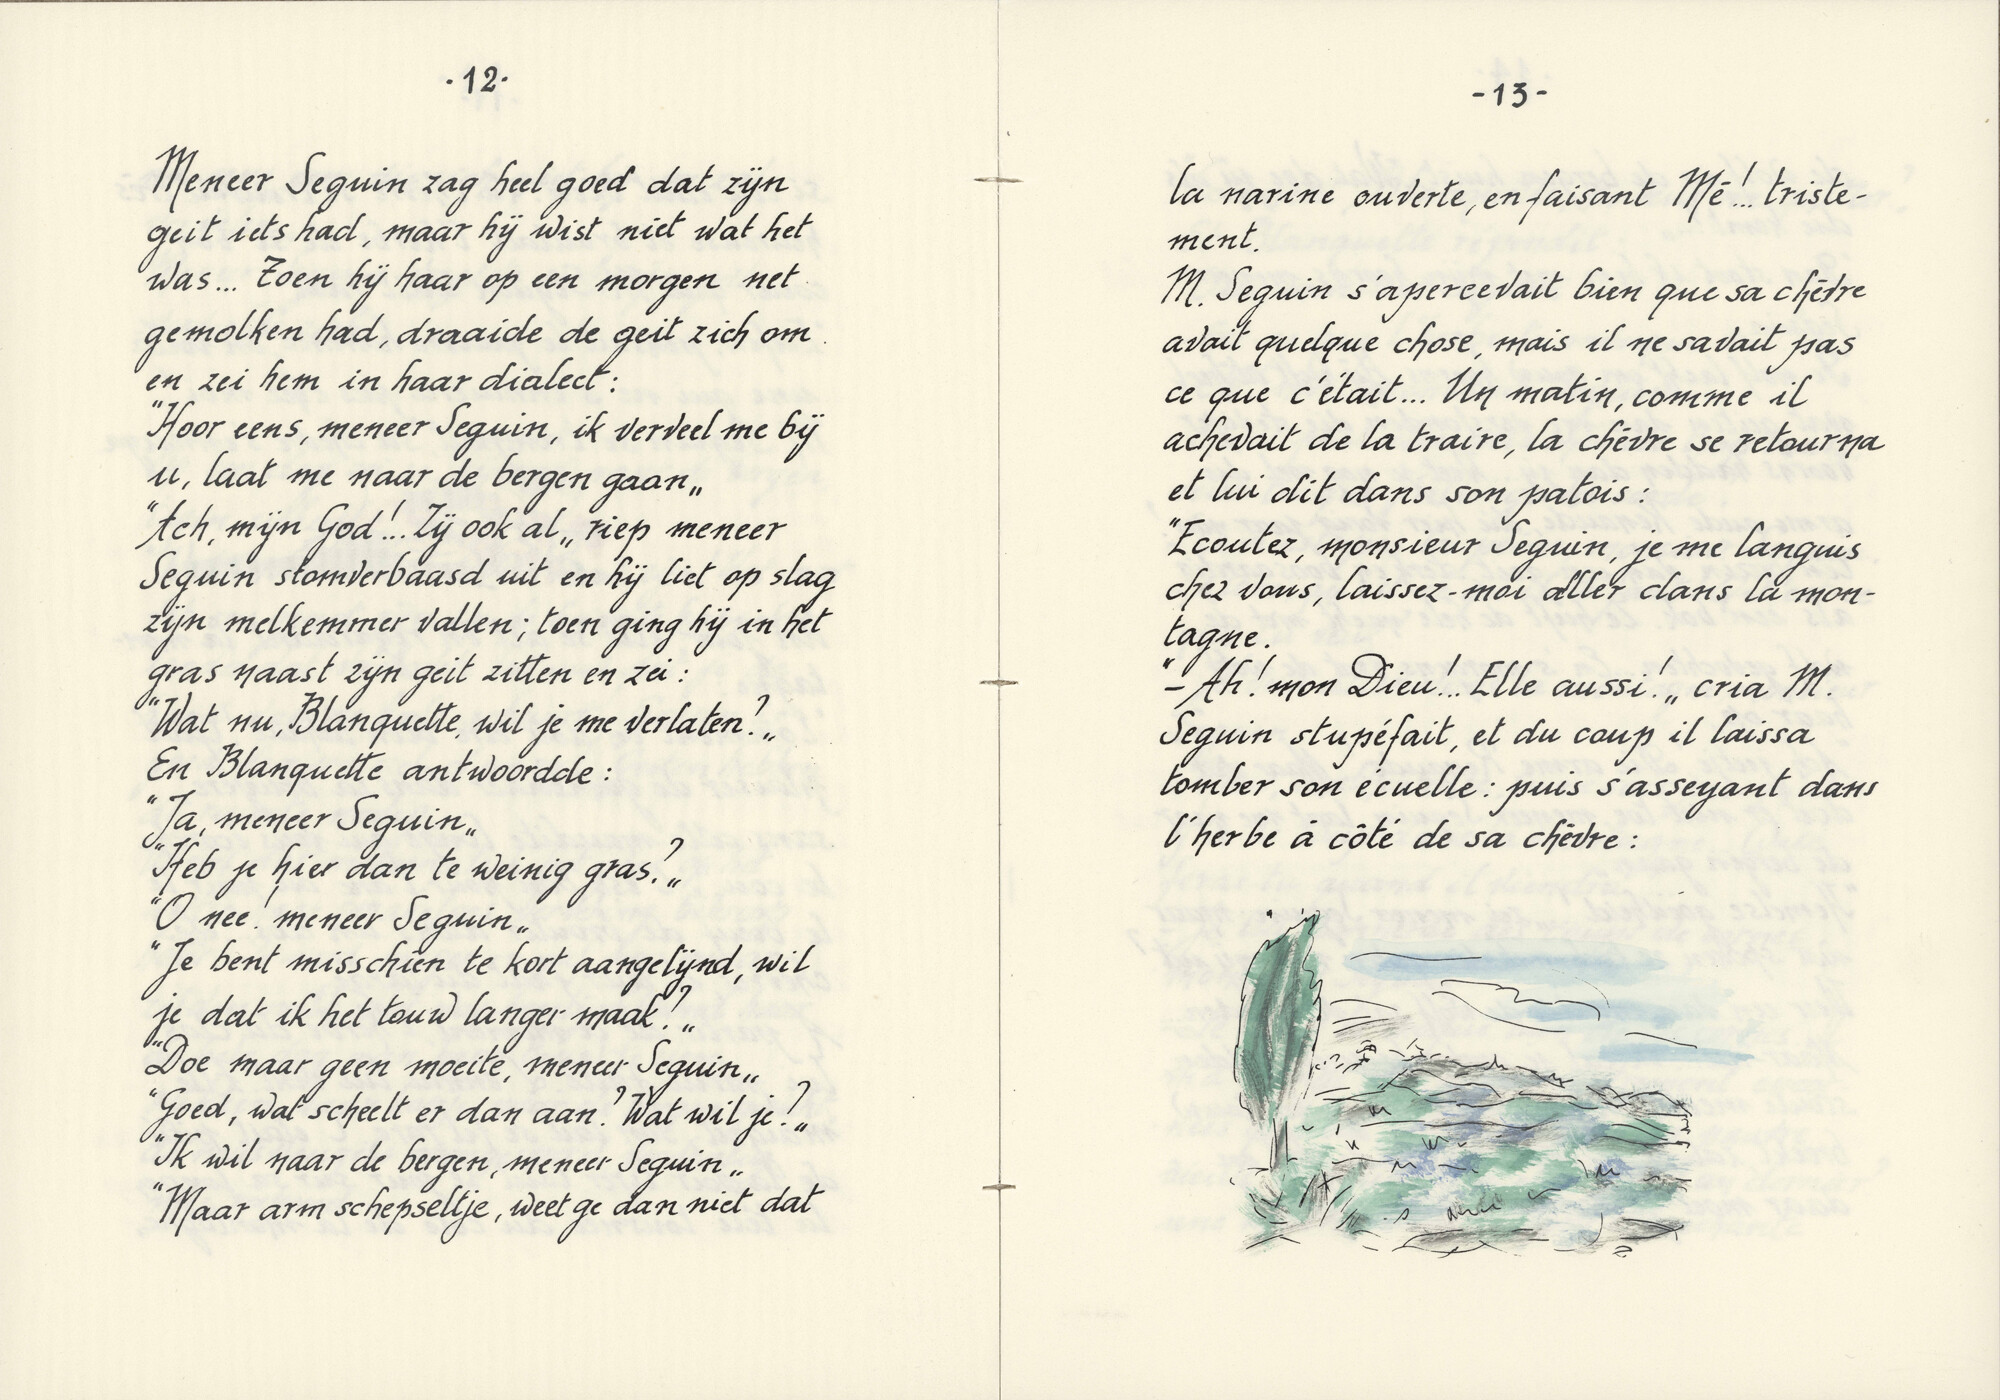 ·12·
Meneer Seguin zag heel goed dat zijn
geit iets had, maar hij wist niet wat het
was... Toen hij haar op een morgen net
gemolken had, draaide de geit zich om
en zei hem in haar dialect:
"Hoor eens, meneer Seguin, ik verveel me bij
u, laat me naar de bergen gaan„
"Ach, mijn God!.. Zij ook al„ riep meneer
Seguin stomverbaasd uit en hij liet op slag
zijn melkemmer vallen; toen ging hij in het
gras naast zijn geit zitten en zei:
"Wat nu, Blanquette, wil je me verlaten?„
En Blanquette antwoordde:
"Ja, meneer Seguin„
"Heb je hier dan te weinig gras?„
"O nee! meneer Seguin„
"Je bent misschien te kort aangelijnd, wil
je dat ik het touw langer maak?„
"Doe maar geen moeite, meneer Seguin„
"Goed, wat scheelt er dan aan? Wat wil je?„
"Ik wil naar de bergen, meneer Seguin„
"Maar arm schepseltje, weet ge dan niet dat
-13-
la narine ouverte, en faisant Mē!.. triste-
ment.
M. Seguin s'apercevait bien que sa chēvre
avait quelque chose, mais il ne savait pas
ce que c'était... Un matin, comme il
achevait de la traire, la chēvre se retourna
et lui dit dans son patois:
"Ecoutez, monsieur Seguin, je me languis
chez vous, laissez-moi aller dans la mon-
tagne.
"– Ah! mon Dieu!.. Elle aussi!„ cria M.
Seguin stupéfait, et du coup il laissa
tomber son écuelle: puis s'asseyant dans
l'herbe à côté de sa chēvre: